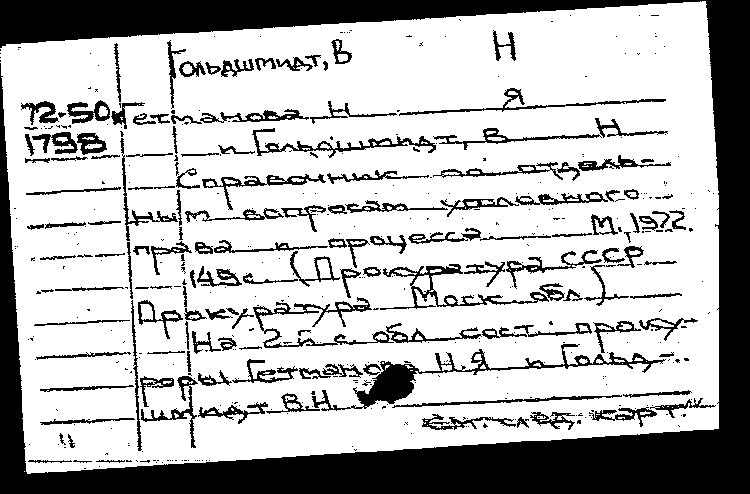 Гольдшмидт, В Н
72-50к Гетманова, Н Я
1798 и Гольдшмидт, В Н
Справочник по отдель-
ным вопросам уголовного
права и процесса М, 1972.
149с (Прокуратура СССР
Прокуратура Моск обл)
На 2-й с обл сост: проку-
роры Гетманова Н.Я и Гольд-
шмидт В.Н.
карт
11